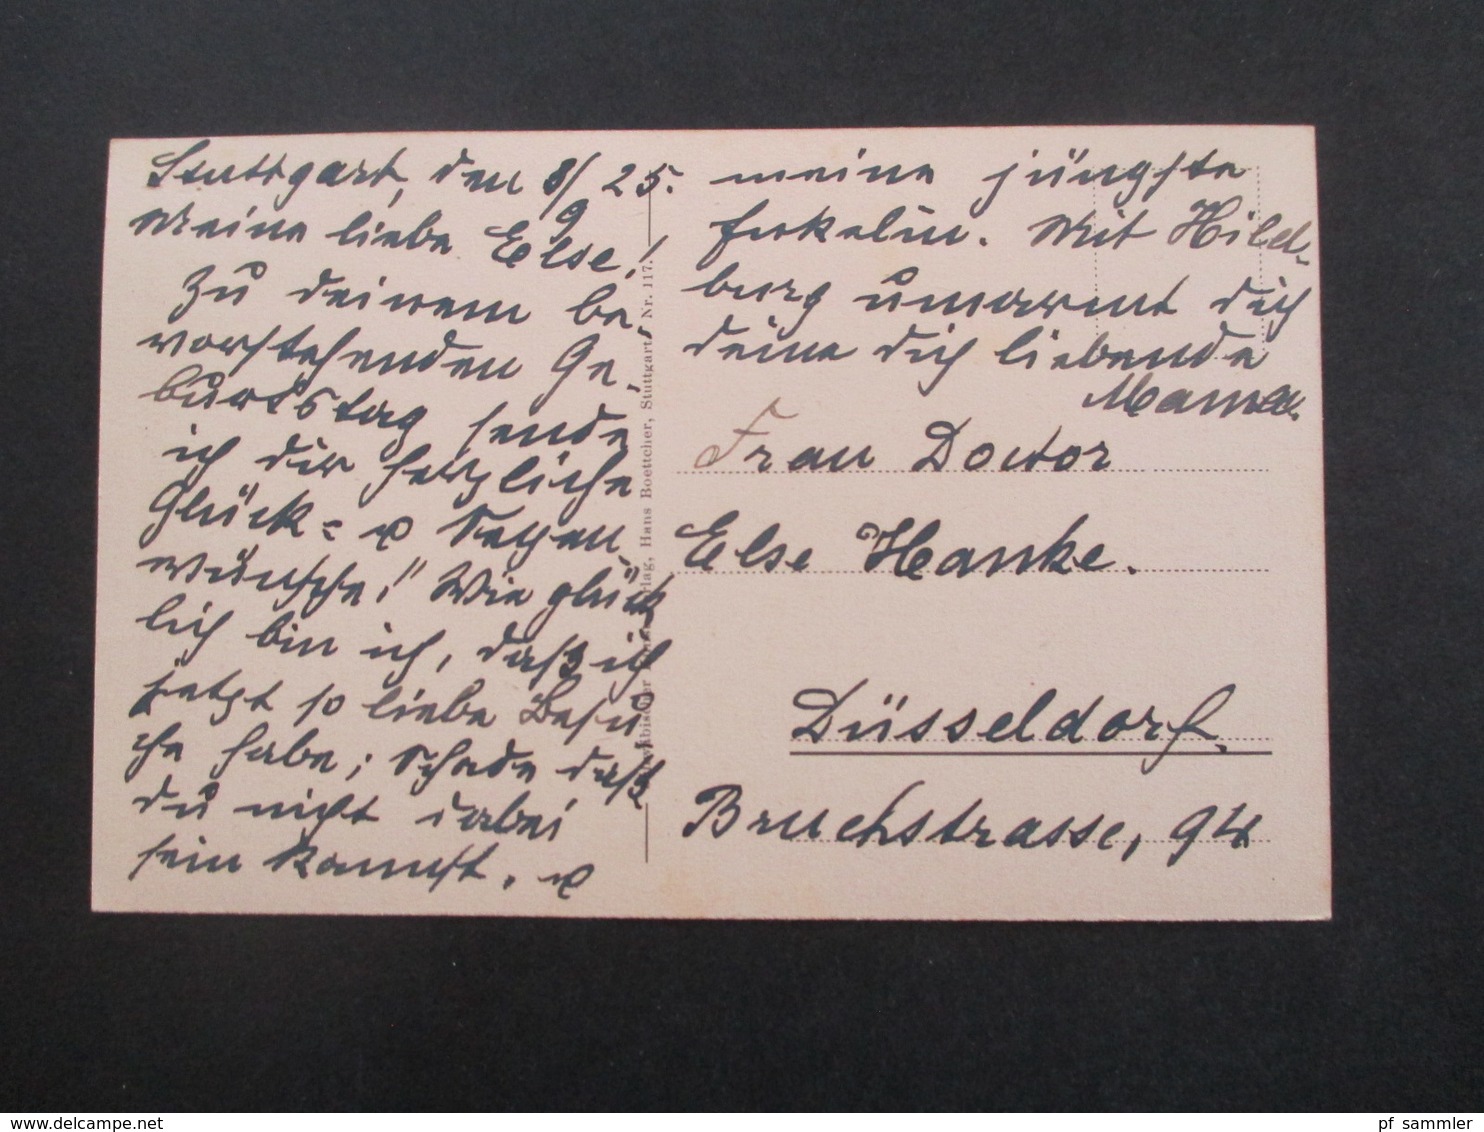 Stuttgart, den 8/9 25.
Meine liebe Else!
Zu deinem be-
vorstehenden Ge-
burtstag sende
ich dir herzliche
Glück- u Segen
wünsche! Wie glück
lich bin ich, daß ich
jetzt so liebe Besu
che habe; schade daß
du nicht dabei
sein kannst. u
meine jüngste
Enkelin. Mit Hilde-
burg umarmt dich
deine dich liebende
Mama.
Frau Doctor
Else Hanke.
Düsseldorf.
Bruchstrasse, 94
Schwäbischer Kunstverlag, Hans Boettcher, Stuttgart. Nr. 117.
pf_sammler